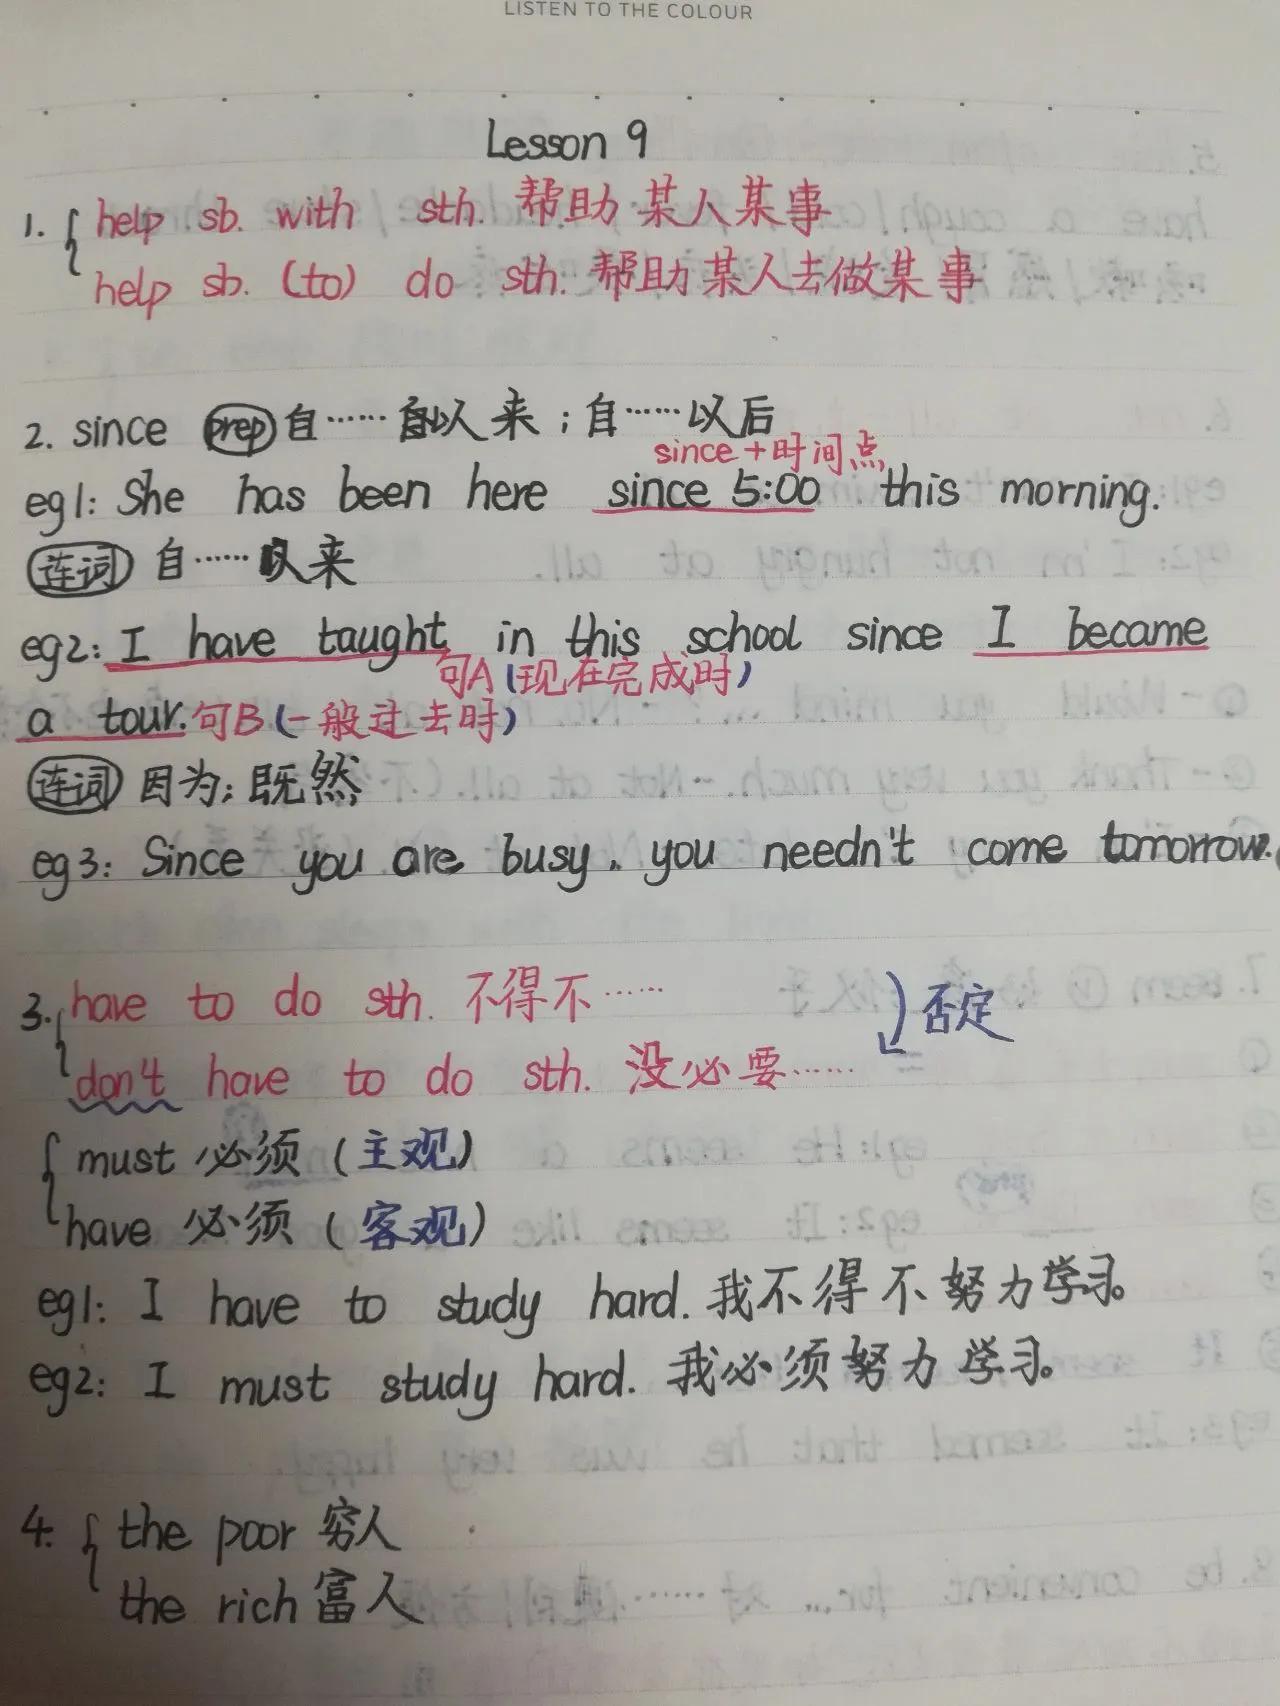 LISTEN TO THE COLOUR
Lesson 9
1. help sb. with sth. 帮助某人某事
help sb. (to) do sth. 帮助某人去做某事
2. since prep 自……以来；自……以后
since+时间点
eg1: She has been here since 5:00 this morning.
连词 自……以来
eg2: I have taught in this school since I became
句A(现在完成时)
a tour. 句B(一般过去时)
连词 因为；既然
eg3: Since you are busy, you needn't come tomorrow.
3. have to do sth. 不得不……
否定
don't have to do sth. 没必要……
must 必须(主观)
have 必须(客观)
eg1: I have to study hard. 我不得不努力学习。
eg2: I must study hard. 我必须努力学习。
4. the poor 穷人
the rich 富人